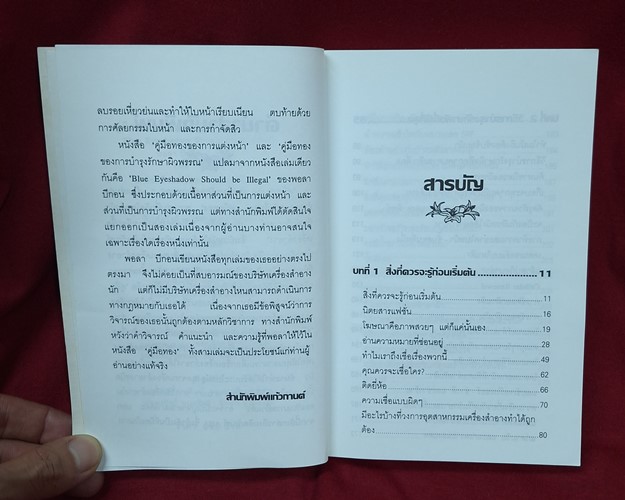 ลบรอยเหี่ยวย่นและทำให้ใบหน้าเรียบเนียน ตบท้ายด้วย
การศัลยกรรมใบหน้า และการกำจัดสิว
หนังสือ 'คู่มือทองของการแต่งหน้า' และ 'คู่มือทอง
ของการบำรุงรักษาผิวพรรณ' แปลมาจากหนังสือเล่มเดียว
กันคือ 'Blue Eyeshadow Should be Illegal' ของพอลา
บีกอน ซึ่งประกอบด้วยเนื้อหาส่วนที่เป็นการแต่งหน้า และ
ส่วนที่เป็นการบำรุงผิวพรรณ แต่ทางสำนักพิมพ์ได้ตัดสินใจ
แยกออกเป็นสองเล่มเนื่องจากผู้อ่านบางท่านอาจสนใจ
เฉพาะเรื่องใดเรื่องหนึ่งเท่านั้น
พอลา บีกอนเขียนหนังสือทุกเล่มของเธออย่างตรงไป
ตรงมา จึงไม่ค่อยเป็นที่สบอารมณ์ของบริษัทเครื่องสำอาง
นัก แต่ก็ไม่มีบริษัทเครื่องสำอางไหนสามารถดำเนินการ
ทางกฎหมายกับเธอได้ เนื่องจากเธอมีข้อพิสูจน์ว่าการ
วิจารณ์ของเธอนั้นถูกต้องตามหลักวิชาการ ทางสำนักพิมพ์
หวังว่าคำวิจารณ์ คำแนะนำ และความรู้ที่พอลาให้ไว้ใน
หนังสือ 'คู่มือทอง' ทั้งสามเล่มจะเป็นประโยชน์แก่ท่านผู้
อ่านอย่างแท้จริง
สำนักพิมพ์แก้วกานต์
สารบัญ
บทที่ 1 สิ่งที่ควรจะรู้ก่อนเริ่มต้น ................... 11
สิ่งที่ควรจะรู้ก่อนเริ่มต้น ................... 11
นิตยสารแฟชั่น ................... 16
โฆษณาคือภาพสวยๆ แต่ก็แค่นั้นเอง ................... 19
อ่านความหมายที่ซ่อนอยู่ ................... 28
ทำไมเราถึงเชื่อเรื่องพวกนี้ ................... 49
คุณควรจะเชื่อใคร? ................... 62
ติดยี่ห้อ ................... 66
ความเชื่อแบบผิดๆ ................... 70
มีอะไรบ้างที่วงการอุตสาหกรรมเครื่องสำอางทำได้ถูก
ต้อง ................... 80